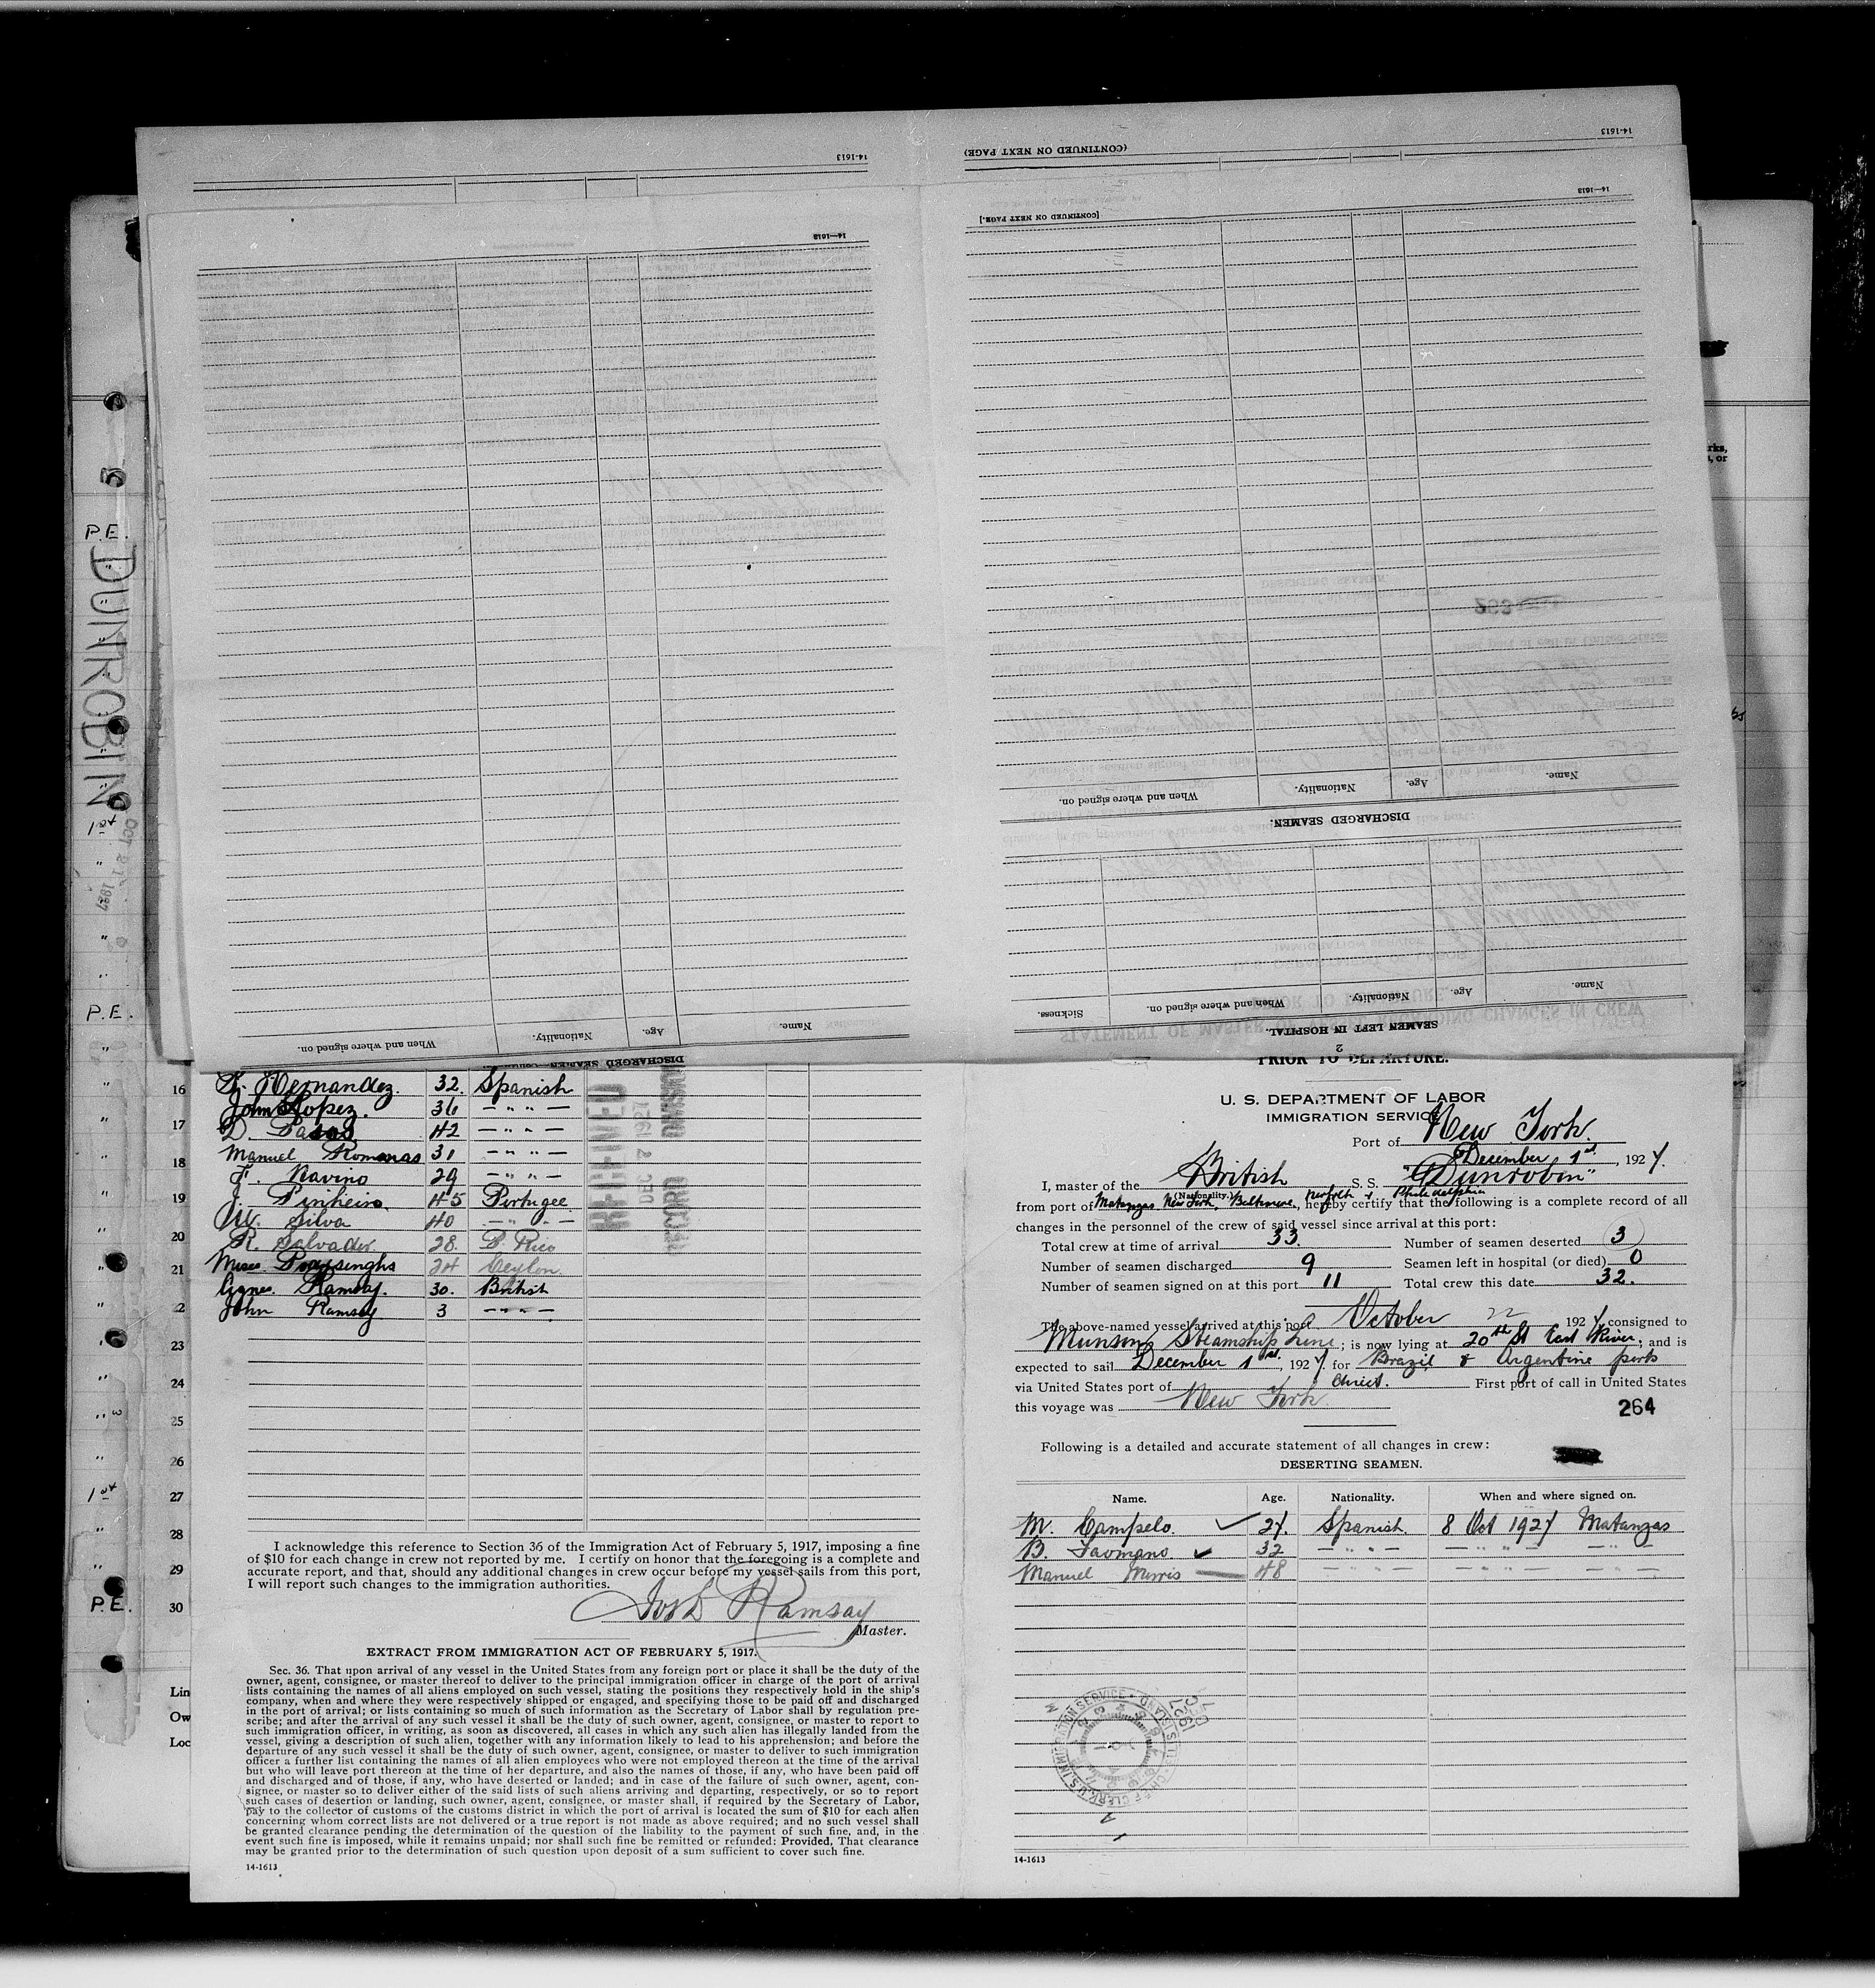 14-1613
(CONTINUED ON NEXT PAGE)
14-1613
14—1613
[CONTINUED ON NEXT PAGE.]
14—1613
Name. Age. Nationality. When and where signed on.
DISCHARGED SEAMEN.
Name. Age. Nationality. When and where signed on. Sickness.
SEAMEN LEFT IN HOSPITAL.
2
Name. Age. Nationality. When and where signed on.
DISCHARGED SEAMEN
5
P.E.
DUNROBIN
1st
OCT 21 1927
P.E.
1st
P.E.
16 Hernandez. 32. Spanish
John Lopez. 36 — " " —
17 D. 42 — " " —
18 Manuel Romanas 31 — " " —
F. Navino 29 — " " —
19 J. Pinheiro. 45 Portugee
Silva 40 — " " —
20 R. Salvador. 28. P. Rico
21 24 Ceylon.
Agnes Ramsay. 30. British
22 John Ramsay 3 — " " —
23
24
25
26
27
28
29
30
RECEIVED
DEC 2 1927
RECORD DIVISION
I acknowledge this reference to Section 36 of the Immigration Act of February 5, 1917, imposing a fine
of $10 for each change in crew not reported by me. I certify on honor that the foregoing is a complete and
accurate report, and that, should any additional changes in crew occur before my vessel sails from this port,
I will report such changes to the immigration authorities.
Ramsay
Master.
EXTRACT FROM IMMIGRATION ACT OF FEBRUARY 5, 1917.
Sec. 36. That upon arrival of any vessel in the United States from any foreign port or place it shall be the duty of the
owner, agent, consignee, or master thereof to deliver to the principal immigration officer in charge of the port of arrival
lists containing the names of all aliens employed on such vessel, stating the positions they respectively hold in the ship's
company, when and where they were respectively shipped or engaged, and specifying those to be paid off and discharged
in the port of arrival; or lists containing so much of such information as the Secretary of Labor shall by regulation pre-
scribe; and after the arrival of any such vessel it shall be the duty of such owner, agent, consignee, or master to report to
such immigration officer, in writing, as soon as discovered, all cases in which any such alien has illegally landed from the
vessel, giving a description of such alien, together with any information likely to lead to his apprehension; and before the
departure of any such vessel it shall be the duty of such owner, agent, consignee, or master to deliver to such immigration
officer a further list containing the names of all alien employees who were not employed thereon at the time of the arrival
but who will leave port thereon at the time of her departure, and also the names of those, if any, who have been paid off
and discharged and of those, if any, who have deserted or landed; and in case of the failure of such owner, agent, con-
signee, or master so to deliver either of the said lists of such aliens arriving and departing, respectively, or so to report
such cases of desertion or landing, such owner, agent, consignee, or master shall, if required by the Secretary of Labor,
pay to the collector of customs of the customs district in which the port of arrival is located the sum of $10 for each alien
concerning whom correct lists are not delivered or a true report is not made as above required; and no such vessel shall
be granted clearance pending the determination of the question of the liability to the payment of such fine, and, in the
event such fine is imposed, while it remains unpaid; nor shall such fine be remitted or refunded: Provided, That clearance
may be granted prior to the determination of such question upon deposit of a sum sufficient to cover such fine.
14-1613
Lin
Ow
Loc
PRIOR TO DEPARTURE.
U. S. DEPARTMENT OF LABOR
IMMIGRATION SERVICE
Port of New York.
December 1st, 1927.
I, master of the British S. S. "Dunrobin"
(Nationality.)
from port of Matanzas New York, Baltimore, Norfolk & Philadelphia, hereby certify that the following is a complete record of all
changes in the personnel of the crew of said vessel since arrival at this port:
Total crew at time of arrival 33. Number of seamen deserted 3
Number of seamen discharged 9 Seamen left in hospital (or died) 0
Number of seamen signed on at this port 11 Total crew this date 32.
The above-named vessel arrived at this port October 22 1927, consigned to
Munson Steamship Line; is now lying at 20th St East River; and is
expected to sail December 1st, 1927. for Brazil & Argentine ports
via United States port of direct. First port of call in United States
this voyage was New York.
264
Following is a detailed and accurate statement of all changes in crew:
DESERTING SEAMEN.
Name. Age. Nationality. When and where signed on.
M. Campelo. 27. Spanish 8 Oct 1927 Matanzas
B. 32 — " " — — " " — — " —
Manuel 48 — " " — — " " — — " —
14-1613